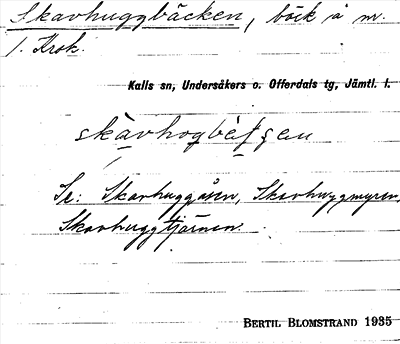 Skavhuggbäcken, bäck å m.
1. Krok.
Kalls sn, Undersåkers o. Offerdals tg, Jämtl. l.
skàvhogbèƭʂen
Se: Skavhuggåsen, Skavhuggmyren,
Skavhuggtjärnen.
BERTIL BLOMSTRAND 1935